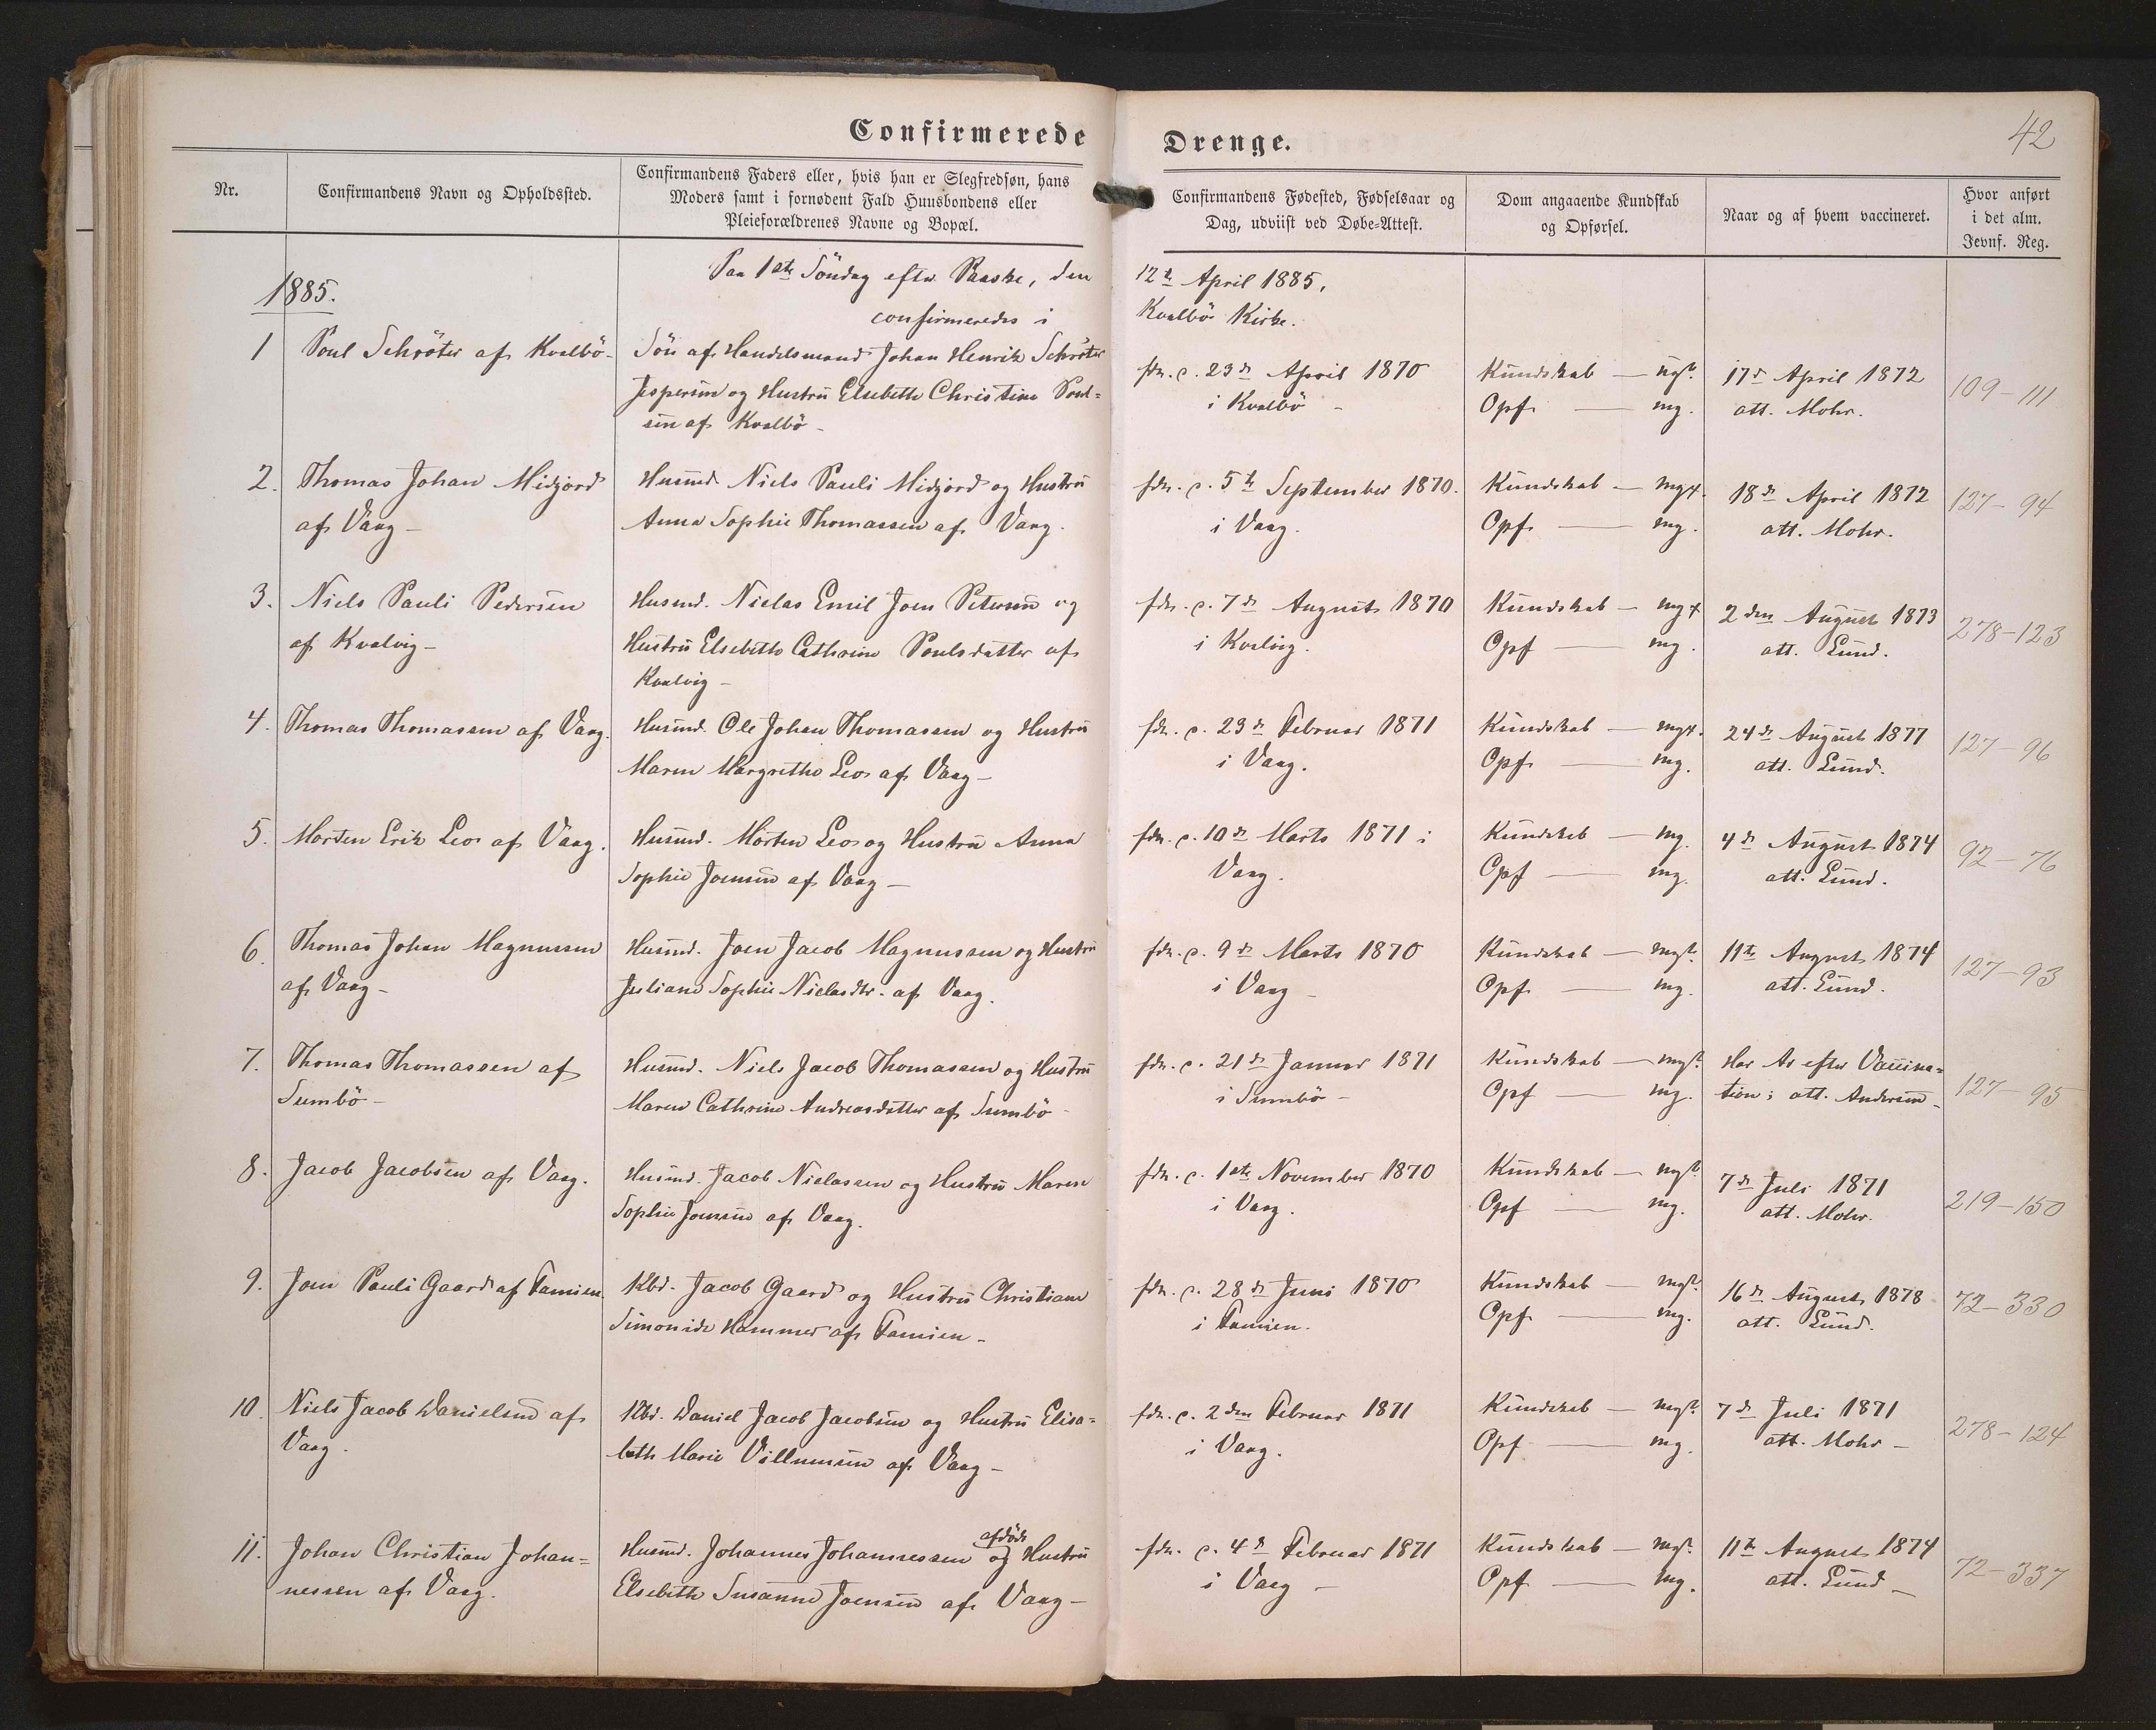 Confirmerede Drenge.
42
Nr.
Confirmandens Navn og Opholdssted.
Confirmandens Faders eller, hvis han er Slegfredsøn, hans
Moders samt i fornødent Fald Huusbondens eller
Pleieforældrenes Navne og Bopæl.
Confirmandens Fødested, Fødselsaar og
Dag, udviist ved Døbe-Attest.
Dom angaaende Kundskab
og Opførsel.
Naar og af hvem vaccineret.
Hvor anført
i det alm.
Jevnf. Reg.
1885.
Paa 1ste Söndag efter Paaske, den 12te April 1885,
confirmeredes i Kvalbö Kirke.
1 Poul Schröter af Kvalbö-
Sön af Handelsmand Johan Henrik Schröter
Jespersen og Hustru Elsebeth Christine Poul=
sen af Kvalbö-
fdt. p. 23de April 1870
i Kvalbö-
Kundskab — ug?
Opf. — mg.
17de April 1872
att. Mohr.
109-111
2. Thomas Johan Midjord
af Vaag-
Husmd. Niels Pauli Midjord og Hustru
Anna Sophie Thomassen af Vaag.
fdt. p. 5te September 1870.
i Vaag.
Kundskab — mg+.
Opf. — mg.
18de April 1872
att. Mohr.
127-94
3. Niels Pauli Pedersen
af Kvalvig-
Husmd. Niclas Emil Joen Petersen og
Hustru Elsebeth Cathrine Poulsdatter af
Kvalvig-
fdt. p. 7de August 1870
i Kvalvig.
Kundskab — mg+
Opf — mg.
2den August 1873
att. Lund.
278-123
4. Thomas Thomassen af Vaag.
Husmd. Ole Johan Thomassen og Hustru
Maren Margrethe Leos af Vaag-
fdt. p. 23de Februar 1871
i Vaag.
Kundskab — mg+.
Opf. — mg.
24de August 1877
att. Lund.
127-96
5. Morten Erik Leos af Vaag.
Husmd. Morten Leos og Hustru Anna
Sophie Joensen af Vaag-
fdt. p. 10de Marts 1871 i
Vaag.
Kundskab — mg.
Opf — mg.
4de August 1874
att. Lund.
92-76
6. Thomas Johan Magnussen
af Vaag-
Husmd. Joen Jacob Magnussen og Hustru
Juliane Sophie Niclasdtr. af Vaag.
fdt. p. 9de Marts 1870
i Vaag-
Kundskab — mg?.
Opf. — mg.
11te August 1874
att. Lund.
127-93
7. Thomas Thomassen af
Sumbö-
Husmd. Niels Jacob Thomassen og Hustru
Maren Cathrine Andreasdatter af Sumbö-
fdt. p. 21de Januar 1871
i Sumbö-
Kundskab — mg?.
Opf — mg.
Har Ar efter Vaccina=
tion; att. Andersen-
127-95
8. Jacob Jacobsen af Vaag.
Husmd. Jacob Niclassen og Hustru Maren
Sophie Joensen af Vaag.
fdt. p. 1ste November 1870
i Vaag.
Kundskab — mg?
Opf — mg.
7de Juli 1871
att. Mohr.
219-150
9. Joen Pauli Gaard af Famien
Kbd. Jacob Gaard og Hustru Christiane
Simonide Hammer af Famien-
fdt. p. 28de Juni 1870
i Famien.
Kundskab — mg?.
Opf. — mg.
16de August 1878
att. Lund.
72-330
10. Niels Jacob Danielsen af
Vaag.
Kbd. Daniel Jacob Jacobsen og Hustru Elisa=
beth Marie Villumsen af Vaag-
fdt. p. 2den Februar 1871
i Vaag.
Kundskab — mg?.
Opf — mg.
7de Juli 1871
att. Mohr-
278-124
11. Johan Christian Johan=
nessen af Vaag.
afdöde
Husmd. Johannes Johannessen og Hustru
Elsebeth Susanne Joensen af Vaag-
fdt. p. 4de Februar 1871
i Vaag-
Kundskab — mg?.
Opf. — mg.
11te August 1874
att. Lund-
72-337